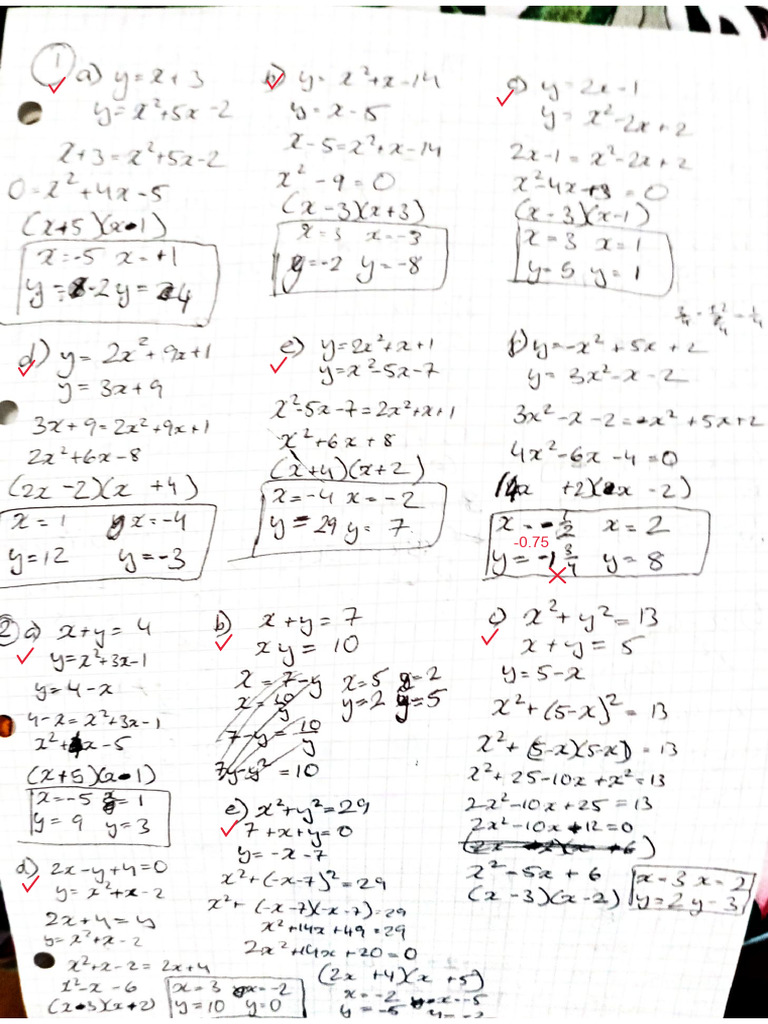 ① a) y = x + 3
y = x² + 5x - 2
x + 3 = x² + 5x - 2
0 = x² + 4x - 5
(x+5)(x-1)
x = -5 x = +1
y = -2 y = 4
b) y = x² + x - 14
y = x - 5
x - 5 = x² + x - 14
x² - 9 = 0
(x - 3)(x + 3)
x = 3 x = -3
y = -2 y = -8
c) y = 2x - 1
y = x² - 2x + 2
2x - 1 = x² - 2x + 2
x² - 4x + 3 = 0
(x - 3)(x - 1)
x = 3 x = 1
y = 5 y = 1
d) y = 2x² + 9x + 1
y = 3x + 9
3x + 9 = 2x² + 9x + 1
2x² + 6x - 8
(2x - 2)(x + 4)
x = 1 x = -4
y = 12 y = -3
e) y = 2x² + x + 1
y = x² - 5x - 7
x² - 5x - 7 = 2x² + x + 1
x² + 6x + 8
(x + 4)(x + 2)
x = -4 x = -2
y = 29 y = 7
f) y = -x² + 5x + 2
y = 3x² - x - 2
3x² - x - 2 = -x² + 5x + 2
4x² - 6x - 4 = 0
(4x + 2)(x - 2)
x = -1/2 x = 2
-0.75
y = -1 3/4 y = 8
② a) x + y = 4
y = x² + 3x - 1
y = 4 - x
4 - x = x² + 3x - 1
x² + 4x - 5
(x + 5)(x - 1)
x = -5 x = 1
y = 9 y = 3
b) x + y = 7
xy = 10
x = 7 - y
x = 10/y
7 - y = 10/y
7y - y² = 10
x = 5 x = 2
y = 2 y = 5
c) x² + y² = 13
x + y = 5
y = 5 - x
x² + (5 - x)² = 13
x² + (5 - x)(5 - x) = 13
x² + 25 - 10x + x² = 13
2x² - 10x + 25 = 13
2x² - 10x + 12 = 0
x² - 5x + 6
(x - 3)(x - 2)
x = 3 x = 2
y = 2 y = 3
d) 2x - y + 4 = 0
y = x² + x - 2
2x + 4 = y
y = x² + x - 2
x² + x - 2 = 2x + 4
x² - x - 6
(x - 3)(x + 2)
x = 3 x = -2
y = 10 y = 0
e) x² + y² = 29
7 + x + y = 0
y = -x - 7
x² + (-x - 7)² = 29
x² + (-x - 7)(-x - 7) = 29
x² + 14x + 49 = 29
2x² + 14x + 20 = 0
(2x + 4)(x + 5)
x = -2 x = -5
y = -5 y = -2